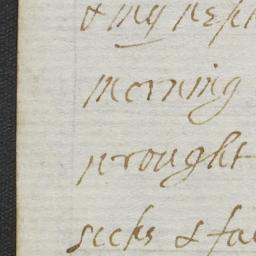 & my neph
morning
wrought
seeks & fa